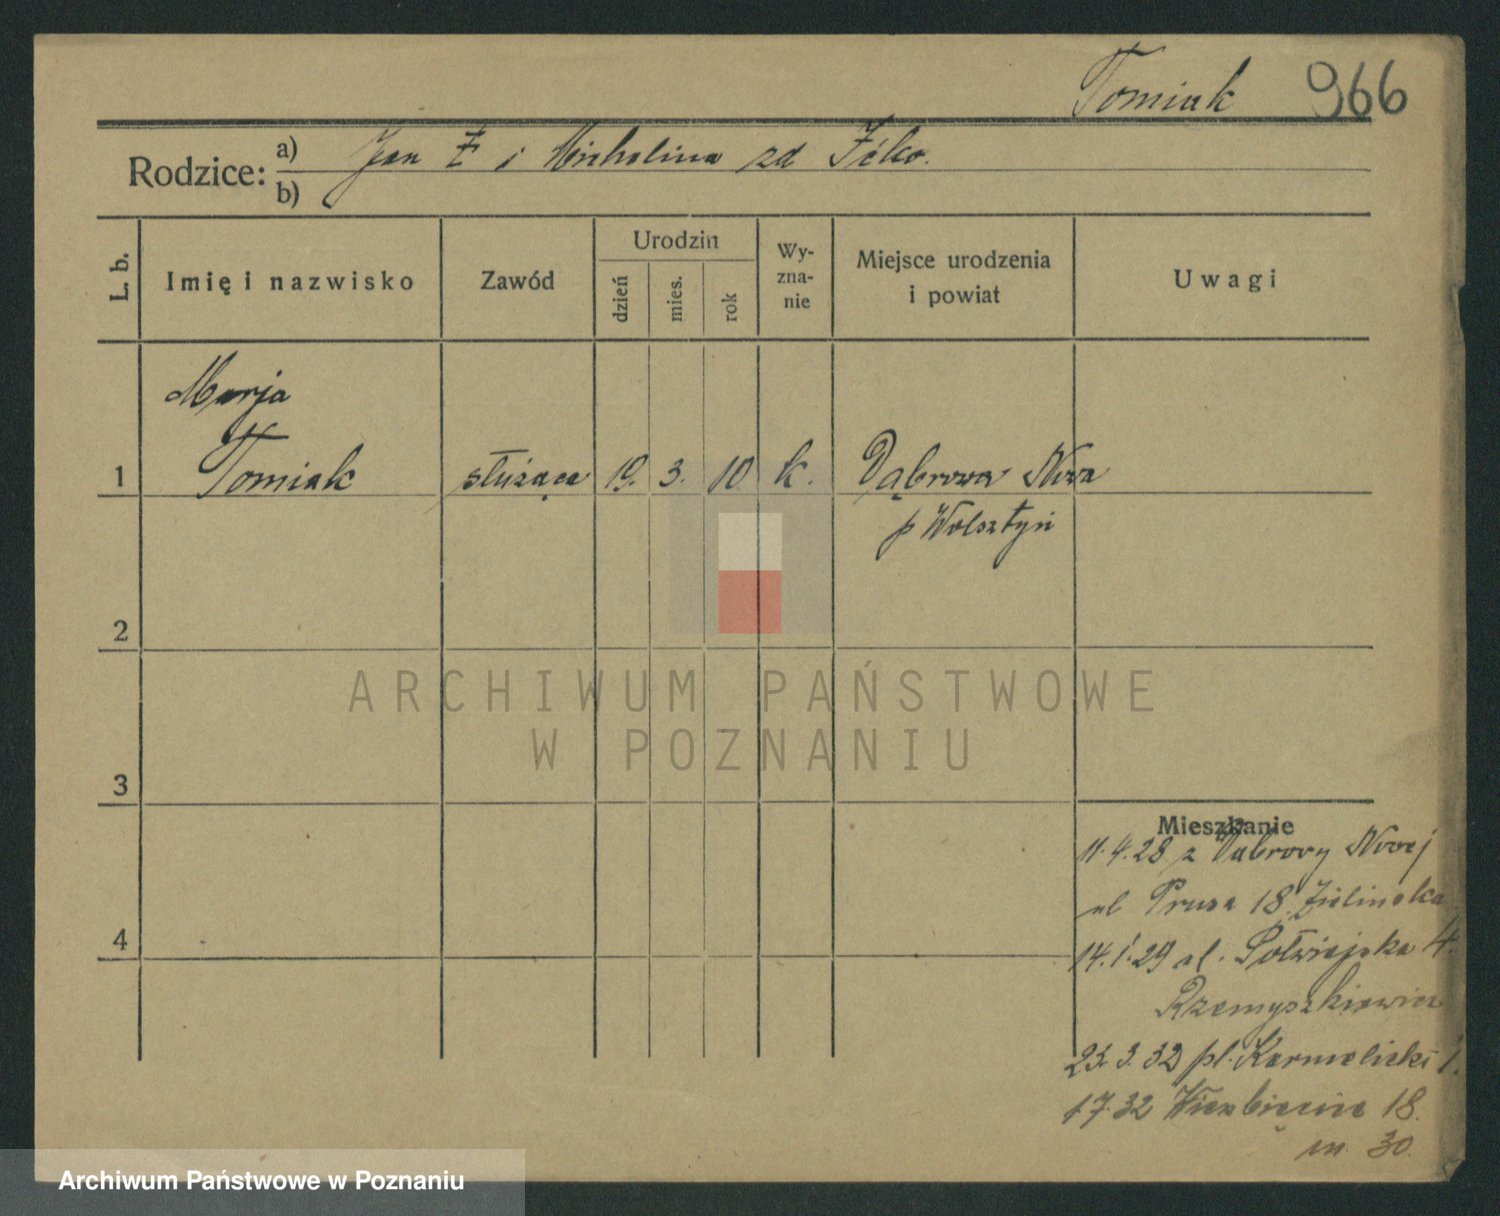 Tomiak 966
Rodzice: a) Jan Ż i Michalina zd Żilko.
b)
L. b. Imię i nazwisko Zawód Urodzin dzień mies. rok Wy-zna-nie Miejsce urodzenia i powiat Uwagi
Marja
1 Tomiak służąca 19. 3. 10 k. Dąbrowa Nowa
p Wolsztyń
2
ARCHIWUM PAŃSTWOWE
W POZNANIU
3
Mieszkanie
11.4.28 z Dąbrowy Nowej
ul Prusa 18 Zielinska
4
14.1.29 ul. Półwiejska 4.
Rzemyszkiewicz
23.3.32 pl. Karmelicki 1.
1.7.32 Wierzbięcice 18.
m. 30.
Archiwum Państwowe w Poznaniu